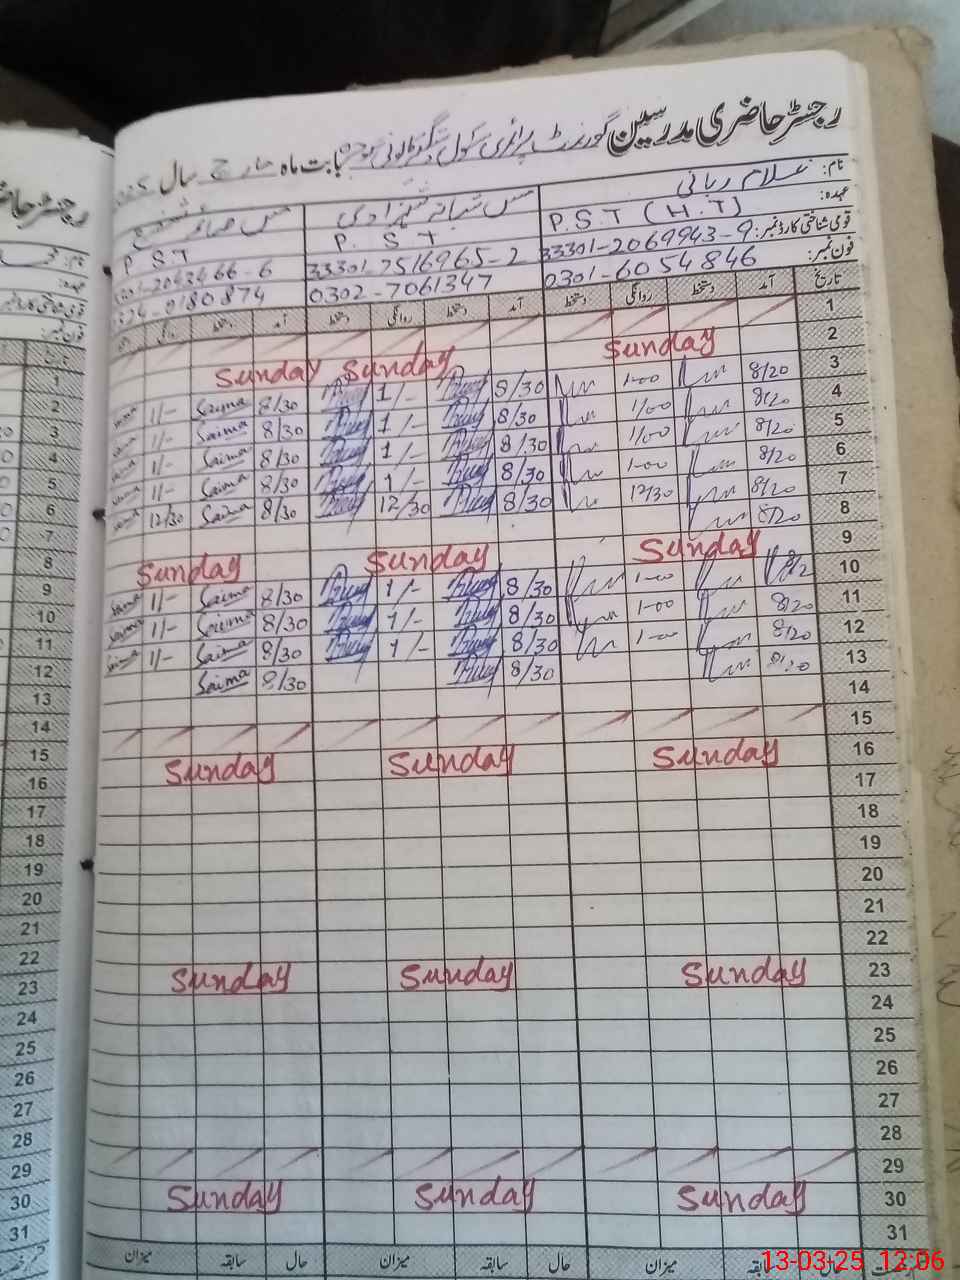 رجسٹر حاضری مدرسین گورنمنٹ پرائمری سکول بابت ماہ مارچ سال
نام: غلام ربانی مس شبانہ شہزادی مس صائمہ
عہدہ: P.S.T (H.T) P. S T P S T
قومی شناختی کارڈ نمبر: 33301-2069943-9 33301-7516965-2
فون نمبر: 0301-6054846 0302-7061347
تاریخ آمد دستخط روانگی دستخط آمد دستخط روانگی دستخط آمد دستخط روانگی
1
2 Sunday Sunday Sunday
3 8/20 1-00 8/30 1/- 8/30 Saima 1/-
4 8/20 1/00 8/30 1/- 8/30 Saima 1/-
5 8/20 1/00 8/30 1/- 8/30 Saima 1/-
6 8/20 1-00 8/30 1/- 8/30 Saima 1/-
7 8/20 12/30 8/30 12/30 8/30 Saima 12/30
8 8/20
9 Sunday Sunday Sunday
10 1-00 8/30 1/- 8/30 Saima 1/-
11 8/20 1-00 8/30 1/- 8/30 Saima 1/-
12 8/20 1-00 8/30 1/- 8/30 Saima 1/-
13 8/20 8/30 8/30 Saima
14
15
16 Sunday Sunday Sunday
17
18
19
20
21
22
23 Sunday Sunday Sunday
24
25
26
27
28
29
30 Sunday Sunday Sunday
31
حال سابقہ میزان حال سابقہ میزان حال سابقہ میزان
رجسٹر حاضر
نام:
عہدہ:
فون نمبر:
تاریخ
1
2
3
4
5
6
7
8
9
10
11
12
13
14
15
16
17
18
19
20
21
22
23
24
25
26
27
28
29
30
31
13-03-25 12:06